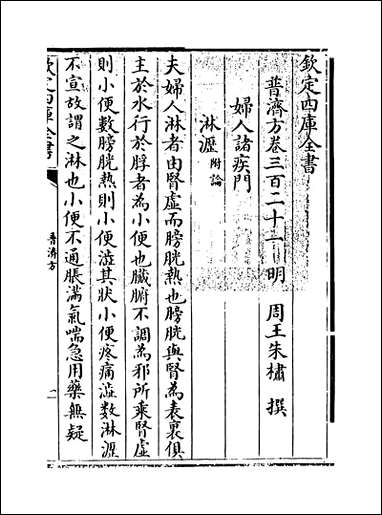 欽定四庫全書
普濟方卷三百二十一 明 周王朱橚 撰
婦人諸疾門
淋瀝附論
夫婦人淋者由腎虛而膀胱熱也膀胱與腎為表裏俱
主於水行於脬者為小便也臟腑不調為邪所乘腎虛
則小便數膀胱熱則小便澁其狀小便疼痛澁數淋瀝
不宣故謂之淋也小便不通脹滿氣喘急用藥無疑
欽定四庫全書
普濟方
一